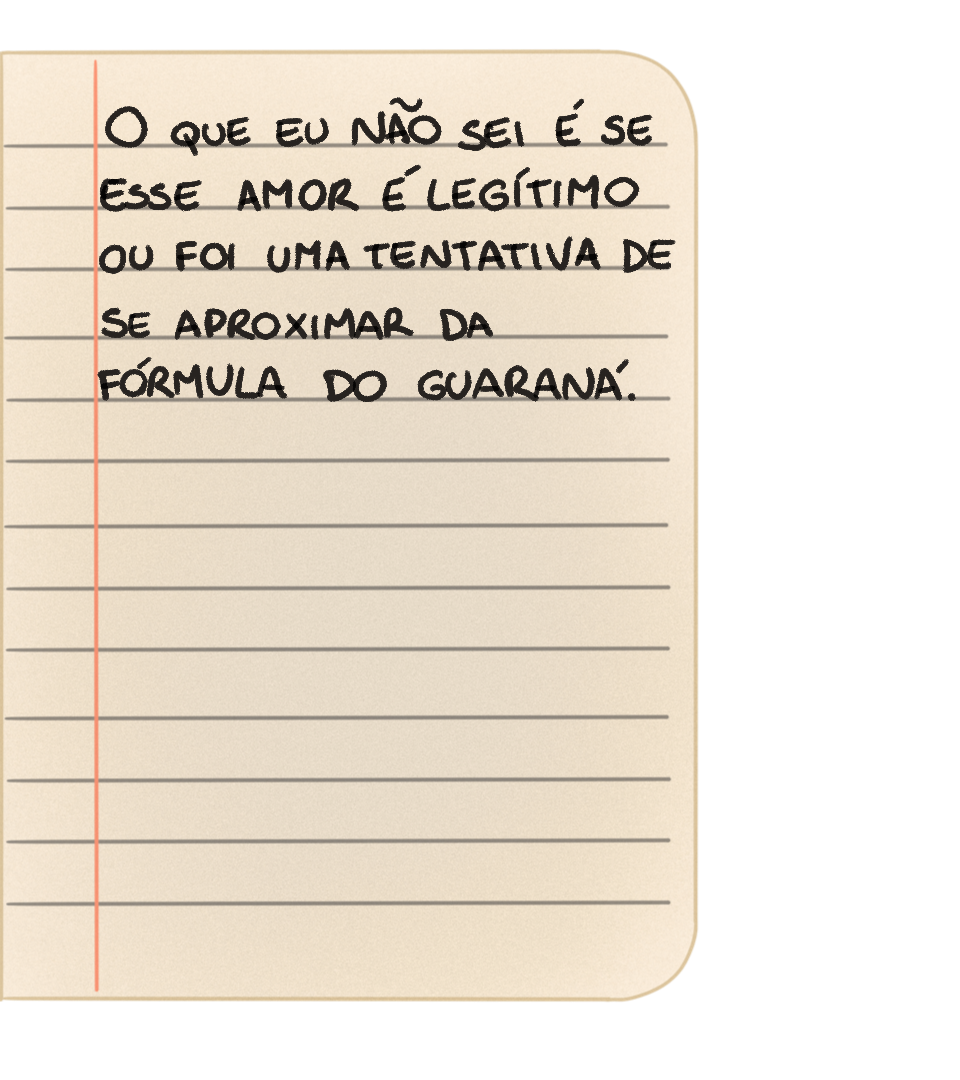 O QUE EU NÃO SEI É SE
ESSE AMOR É LEGÍTIMO
OU FOI UMA TENTATIVA DE
SE APROXIMAR DA
FÓRMULA DO GUARANÁ.